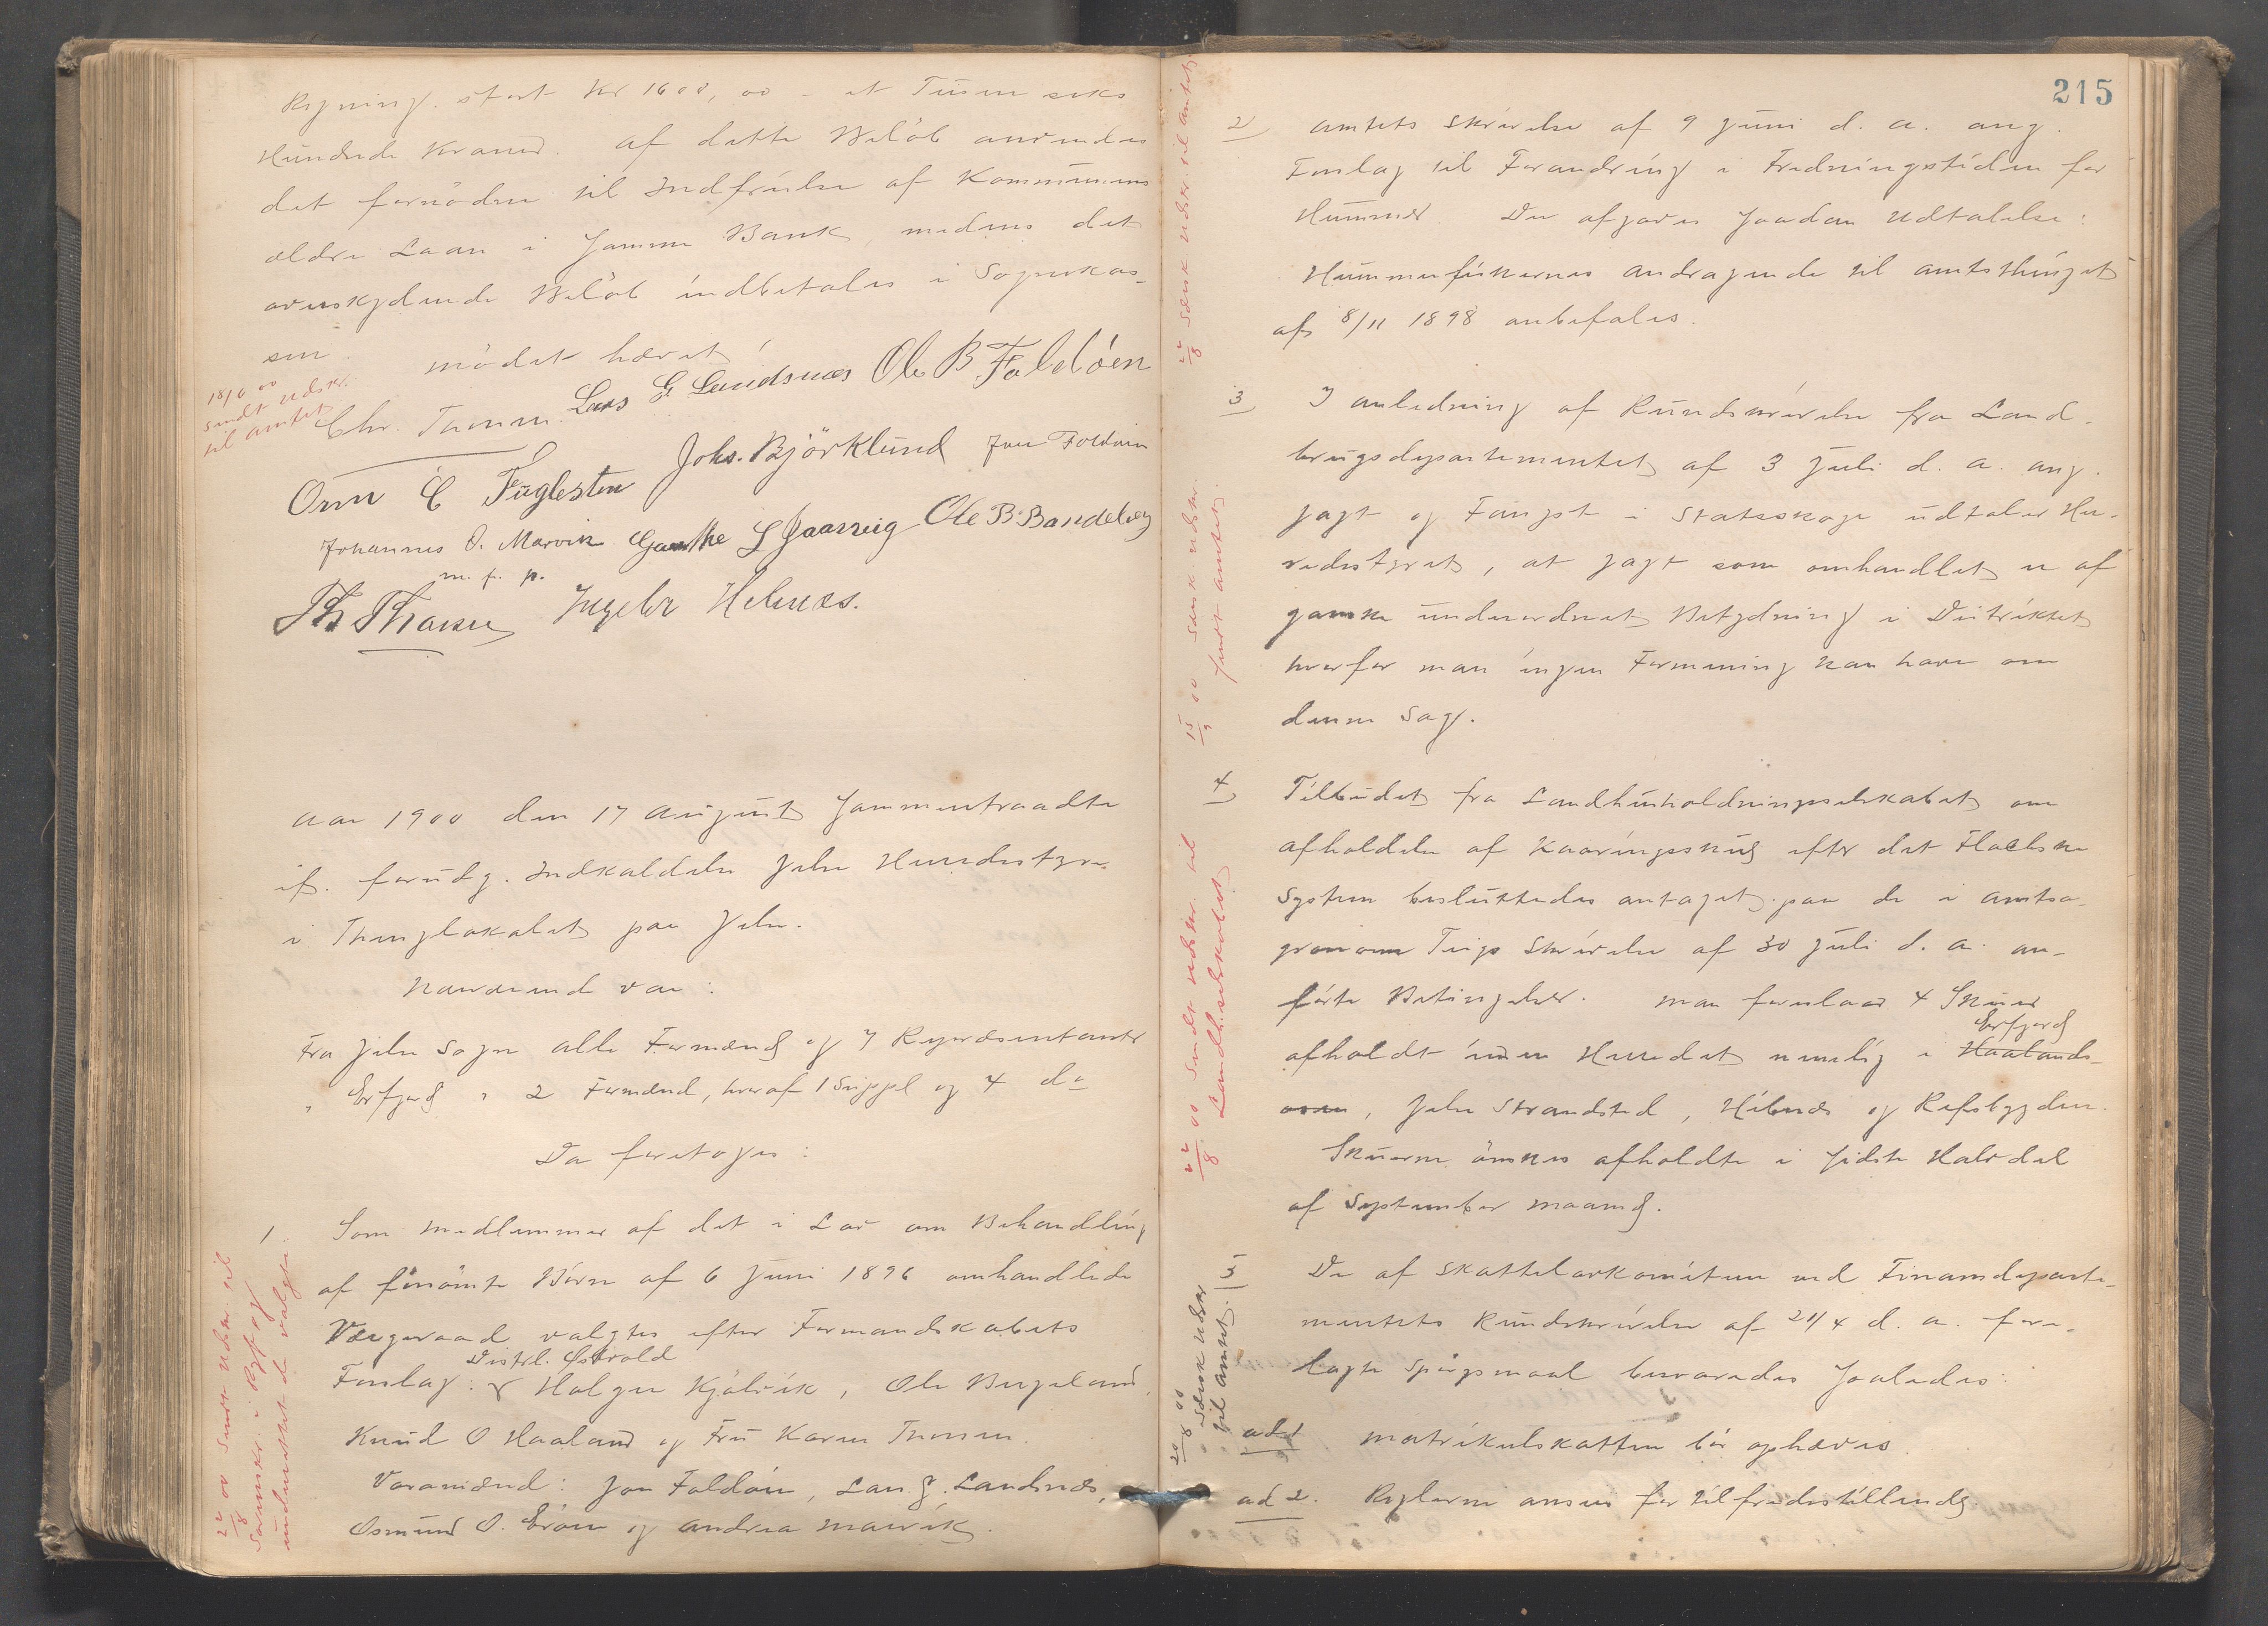 Regning stort Kr 1600,00 – et Tusen seks
Hundrede Kroner. Af dette Beløb anvendes
det fornødne til Indfrielse af Kommunens
ældre Laan i samme Bank, medens det
overskydende Beløb indbetales i Sognekas-
sen. Mødet hævet
18/6 00
sendt udskr.
til amtet
Chr. Thomsen Lars G Landsnæs Ole B Foldøen
Orm E Fuglesten Johs. Björklund Jon Foldøen
Johannes O. Marvik Gauthe L Jaarvig Ole B. Bandeberg
m. f. p.
Ingebr Hebnes.
Aar 1900 den 17 August sammentraadte
ifl. forudg. Indkaldelse Jelse Herredstyre
i Thinglokalet paa Jelse.
Nærværende var:
Fra Jelse Sogn alle Formænd og 7 Repræsentanter
" Erfjord " 2 Formænd, hvoraf 1 Suppl og 4 do
Da foretoges:
1 Som Medlemmer af det i Lov om Behandling
af forsømte Børn af 6 Juni 1896 omhandlede
Værgeraad valgtes efter Formandskabets
Distrl. Østvold
Forslag: Holger Kjölvik, Ole Bergeland,
Knud O Haaland og Fru Karen Thomsen.
Varamænd: Jon Foldøen, Lars G. Landsnæs,
Osmund O. Eröen og Andrea Marvik.
22/8 00 Sendt Udskr. til
Sorenskr. i Ryf og
underrettet de valgte.
215
2 Amtets Skrivelse af 9 Juni d. a. ang.
Forslag til Forandring i Fredningstiden for
Hummer. Der afgaves saadan Udtalelse:
Hummerfiskernes Andragende til Amtsthinget
af 8/11 1898 anbefales.
22/8 Særsk. Udskr. til Amtet
3 I Anledning af Rundskrivelse fra Land-
brugsdepartementet af 3 Juli d. a. ang.
Jagt og Fangst i Statsskoge udtaler Her-
redsstyret, at Jagt som omhandlet er af
ganske underordnet Betydning i Distriktet
hvorfor man ingen Formening kan have om
denne Sag.
15/9 00 Særsk Udskr.
sendt Amtet
4 Tilbudet fra Landhusholdningsselskabet om
Afholdelse af Kaaringsskue efter det Flackske
System besluttedes antaget paa de i Amtsa-
gronom Teigs Skrivelse af 30 Juli d. a. an-
førte Betingelser. Man foreslaar 4 Skuer
Erfjord
afholdt inden Herredet nemlig i Haalands-
osen, Jelse Strandsted, Hebnes og Refsbygden.
Skuerne ønskes afholdte i sidste Halvdel
af September Maaned.
22/8 00 Sendt Udskr. til
Landh.selskabet
5 De af Skattelovkomiteen ved Finansdeparte-
mentets Rundskrivelse af 21/4 d. a. fore-
lagte Spørgsmaal besvaredes saaledes:
ad 1 Matrikulskatten bør ophæves.
ad 2. Reglerne ansees for tilfredsstillende
20/8 00
Særsk Udskr
til Amtet.